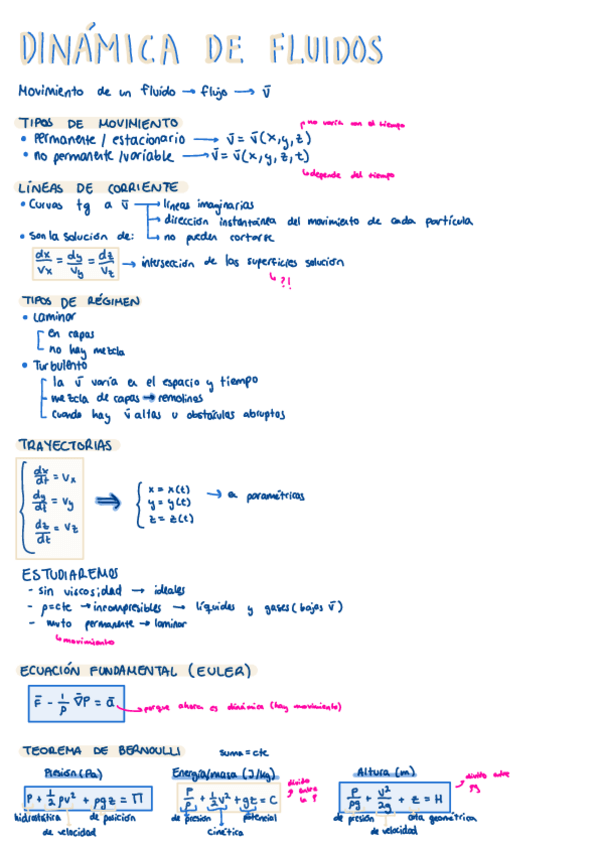 DINÁMICA DE FLUIDOS
Movimiento de un fluido → flujo → v̄
TIPOS DE MOVIMIENTO
no varía con el tiempo
• Permanente / estacionario → v̄ = v̄(x,y,z)
• no permanente /variable → v̄ = v̄(x,y,z,t)
depende del tiempo
LÍNEAS DE CORRIENTE
• Curvas tg a v̄ → líneas imaginarias
→ dirección instantánea del movimiento de cada partícula
→ no pueden cortarse
• Son la solución de:
dx/Vx = dy/Vy = dz/Vz → intersección de las superficies solución
↳ ?!
TIPOS DE RÉGIMEN
• Laminar
en capas
no hay mezcla
• Turbulento
la v̄ varía en el espacio y tiempo
mezcla de capas → remolinos
cuando hay v̄ altas u obstáculos abruptos
TRAYECTORIAS
dx/dt = Vx
dy/dt = Vy
dz/dt = Vz
⇒
x = x(t)
y = y(t)
z = z(t)
→ a paramétricas
ESTUDIAREMOS
- sin viscosidad → ideales
- ρ=cte → incompresibles → líquidos y gases (bajas v̄)
- mvto permanente → laminar
↳ movimiento
ECUACIÓN FUNDAMENTAL (EULER)
F̄ - 1/ρ ∇̄P = ā → porque ahora es dinámica (hay movimiento)
TEOREMA DE BERNOULLI
suma = cte
Presión (Pa)
P + 1/2 ρv² + ρgz = Π
hidrostática
de posición
de velocidad
Energía/masa (J/kg)
divido entre la ρ
P/ρ + 1/2 v² + gz = C
de presión
potencial
cinética
Altura (m)
divido entre ρg
P/ρg + v²/2g + z = H
de presión
cota geométrica
de velocidad